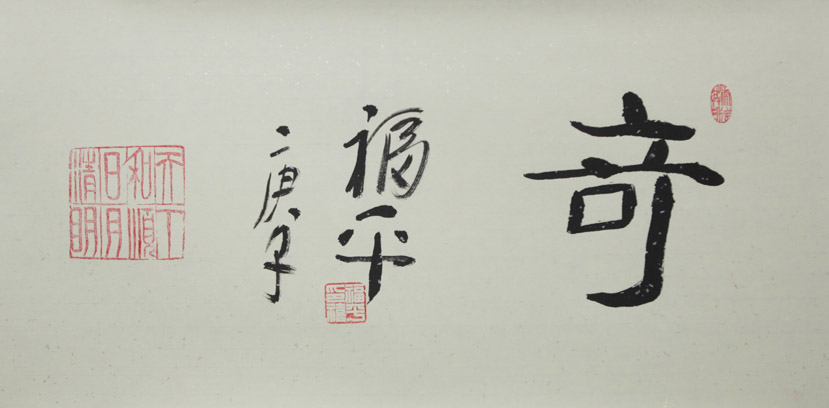 竒
福平
庚子
天下
和順
日月
清明